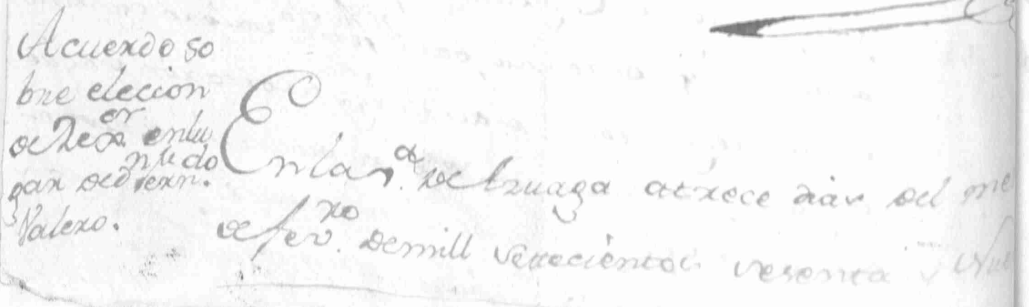 Acuerdo so
bre elecion
de Rex.or en lu
gar de D. Bern.do
Valero.
En la v.a de Azuaga a trece dias del me
de fev.ro de mill setecientos sesenta y